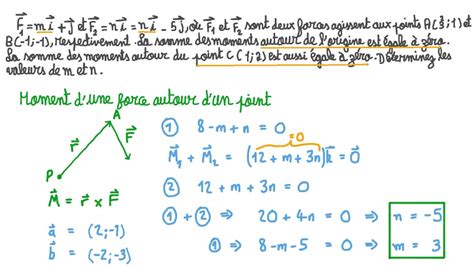 F⃗₁ = m i⃗ + j⃗ et F⃗₂ = n i⃗ = n i⃗ - 5 j⃗, où F⃗₁ et F⃗₂ sont deux forces agissent aux points A(3;1) et
B(-1;-1), respectivement. La somme des moments autour de l'origine est égale à zéro.
La somme des moments autour du point C(1;2) est aussi égale à zéro. Déterminez les
valeurs de m et n.
Moment d'une force autour d'un point
A
r⃗
F⃗
P
M⃗ = r⃗ × F⃗
a⃗ = (2;-1)
b⃗ = (-2;-3)
① 8 - m + n = 0
=0
M⃗₁ + M⃗₂ = (12 + m + 3n) k⃗ = 0⃗
② 12 + m + 3n = 0
① + ② ⇒ 20 + 4n = 0 ⇒ n = -5
① ⇒ 8 - m - 5 = 0 ⇒ m = 3